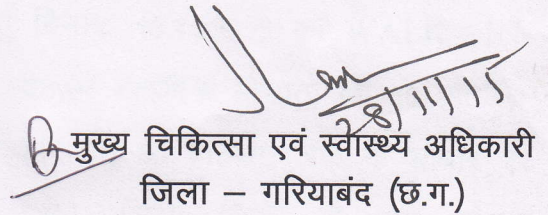 28/11/15
मुख्य चिकित्सा एवं स्वास्थ्य अधिकारी
जिला – गरियाबंद (छ.ग.)